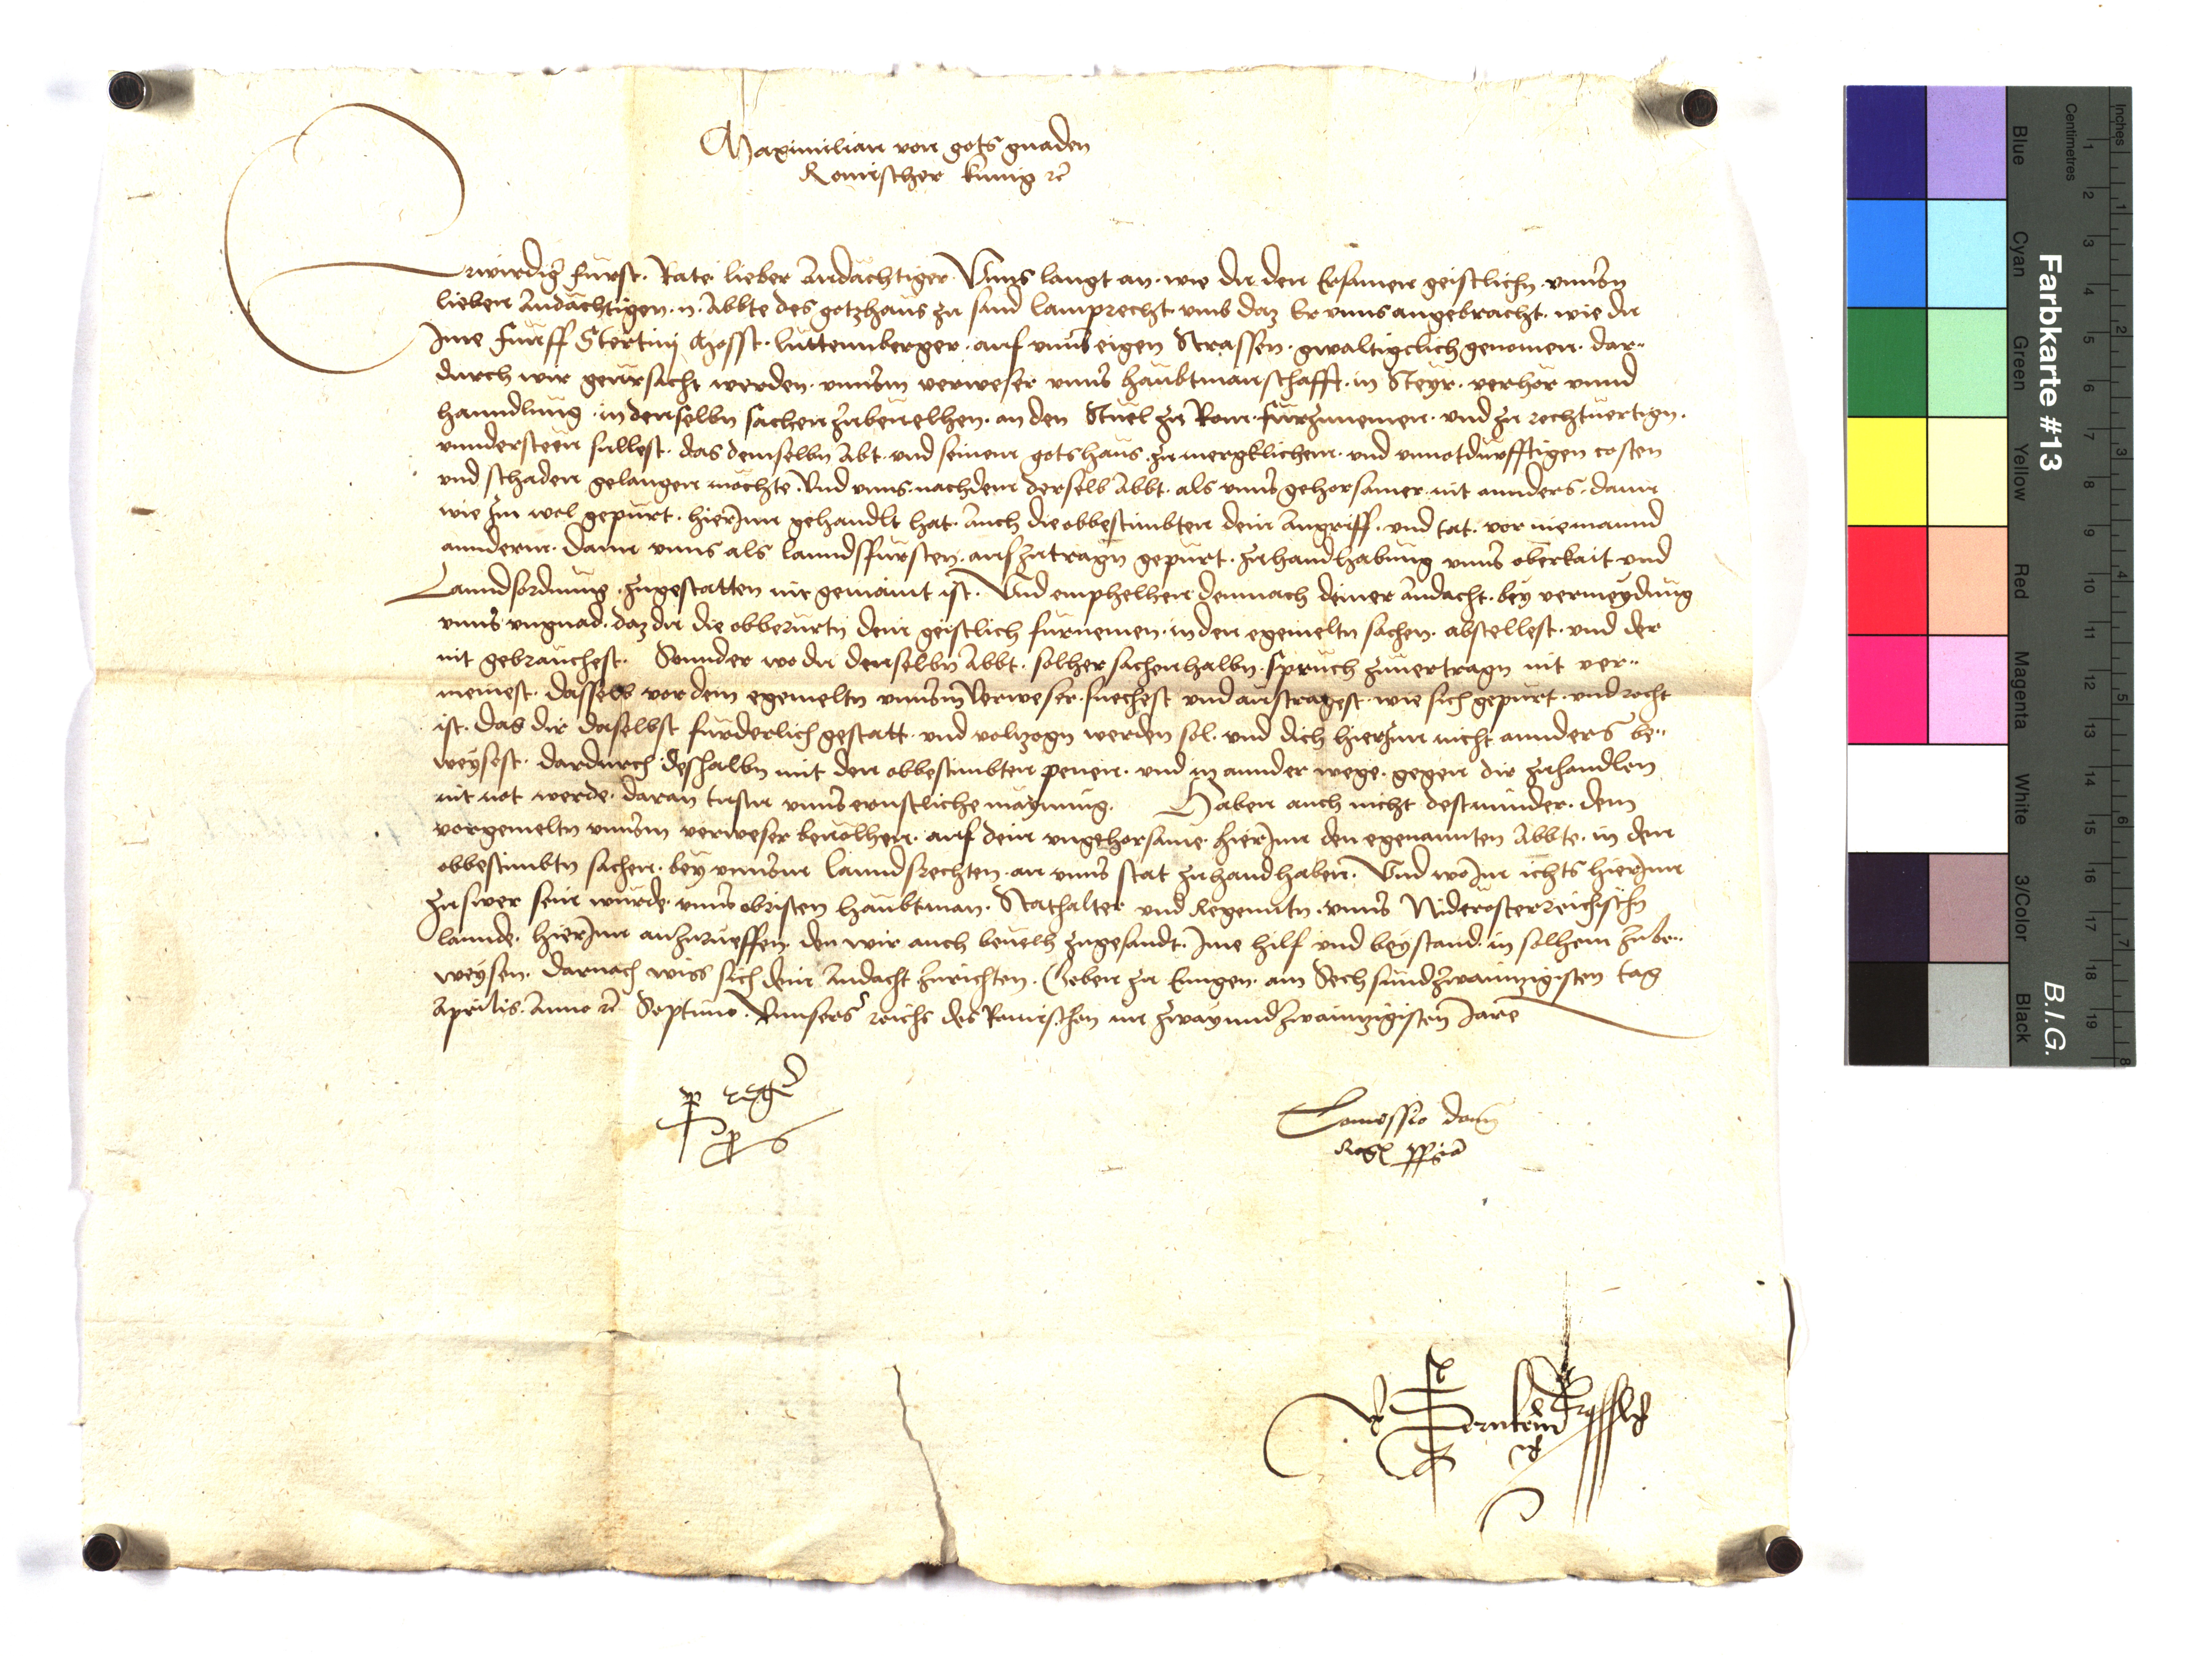 Maximilian von gots gnaden
Romischer kunig rc
Erwirdig fürst. Rate. lieber Andächtiger. Vnns langt an. wie du den Ersamen geistlichn. vnnsern
lieben Andächtigen. n. Abbte des gotzhaus zu sand Lamprecht. vmb daz Er vnns angebracht. wie du
Ime Funff Stertinj Mosst. Luttemberger. auf vnns eigen Strassen. gwaltigclich genomen. dar„
durch wir geursacht werden. vnnserm verweser vnns haubtmanschafft. in Steyr. verhör vnnd
hanndlung. in denselbn sachen zubeuelhen. an den Stuel zu Rom. fürzunemen. vnd zu rechtuertign.
vnndersteen sullest. das demselbn Abt. vnd seinem gotshaus. zu mergklichem. vnd vnnotdurfftigen costen
vnd schaden gelangen möchte. Vnd vnns. nachdem derselb Abbt. als vnns gehorsamer. nit annders. dann
wie Im wol gepurt. hierInn gehandlt hat. Auch die obbestimbten dein Angriff. vnd tat. vor niemannd
annderm. dann vnns als lanndsfürsten. aufzutragn gepürt. zuhandhabung vnns oberkait vnd
Lanndsordnung. zugestatten nit gemaint ist. Vnd emphelhen demnach deiner Andacht. bey vermeydung
vnns vngnad. daz du die obberurtn dein geistlich furnemen. in den egemeltn sachen. abstellest. vnd der
nit gebrauchest. Sonnder wo du denselbn Abbt. solher sachenhalbn. spruch zuuertragn nit ver„
meinest. dasselb vor dem egemeltn vnnserm Verweser. suechest vnd austragest. wie sich gepürt. vnd recht
ist. das dir daselbst fürderlich gestatt. vnd volzogn werden sol. vnd dich hierInn nicht annders be„
weysest. dardurch deshalbn mit den obbestimbten penen. vnd in annder wege. gegen dir zuhandlen
nit not werde. daran tustu vnns ernstliche maynung. Haben auch nicht destminder. dem
vorgemeltn vnnserm verweser beuolhen. auf dein vngehorsame. hierInn den egenannten Abbte. in den
obbestimbtn sachen. bey vnnserm lanndsrechten. an vnns stat zuhandhaben. Vnd wo Im ichts hierInn
zu swer sein wurde. vnns obristen haubtman. Stathalter vnd Regenntn. vnns Niderosterreichischn
lannde. hierInn anzurueffen. den wir auch beuelh zugesandt. Ime hilf vnd beystand. in solhem zube„
weysen. darnach wiss sich dein Andacht zurichten. Geben zu Enngen. am Sechsundzwainzigisten tag
Aprilis. Anno rc Septimo. Vnnsers reichs des Romischen im zwayundzwainzigisten Jare
p regem
p s
Comissio domini
Regis propria